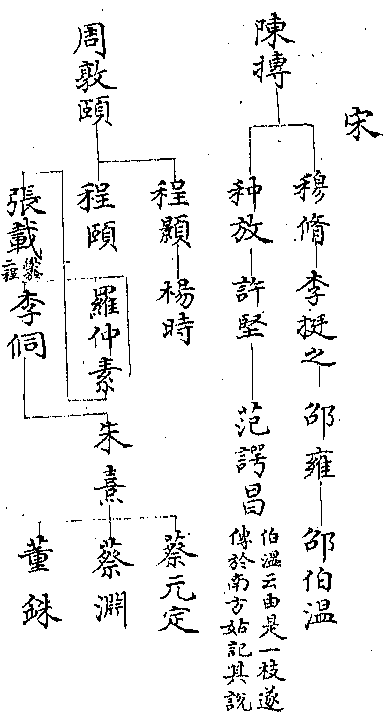 宋
陳摶
穆脩
李挺之
邵雍
邵伯溫
种放
許堅
范諤昌
伯溫云由是一枝遂
傳於南方姑記其說
周敦頤
程顥
楊時
程頤
羅仲素
張載
李侗
朱熹
蔡元定
蔡淵
董銖